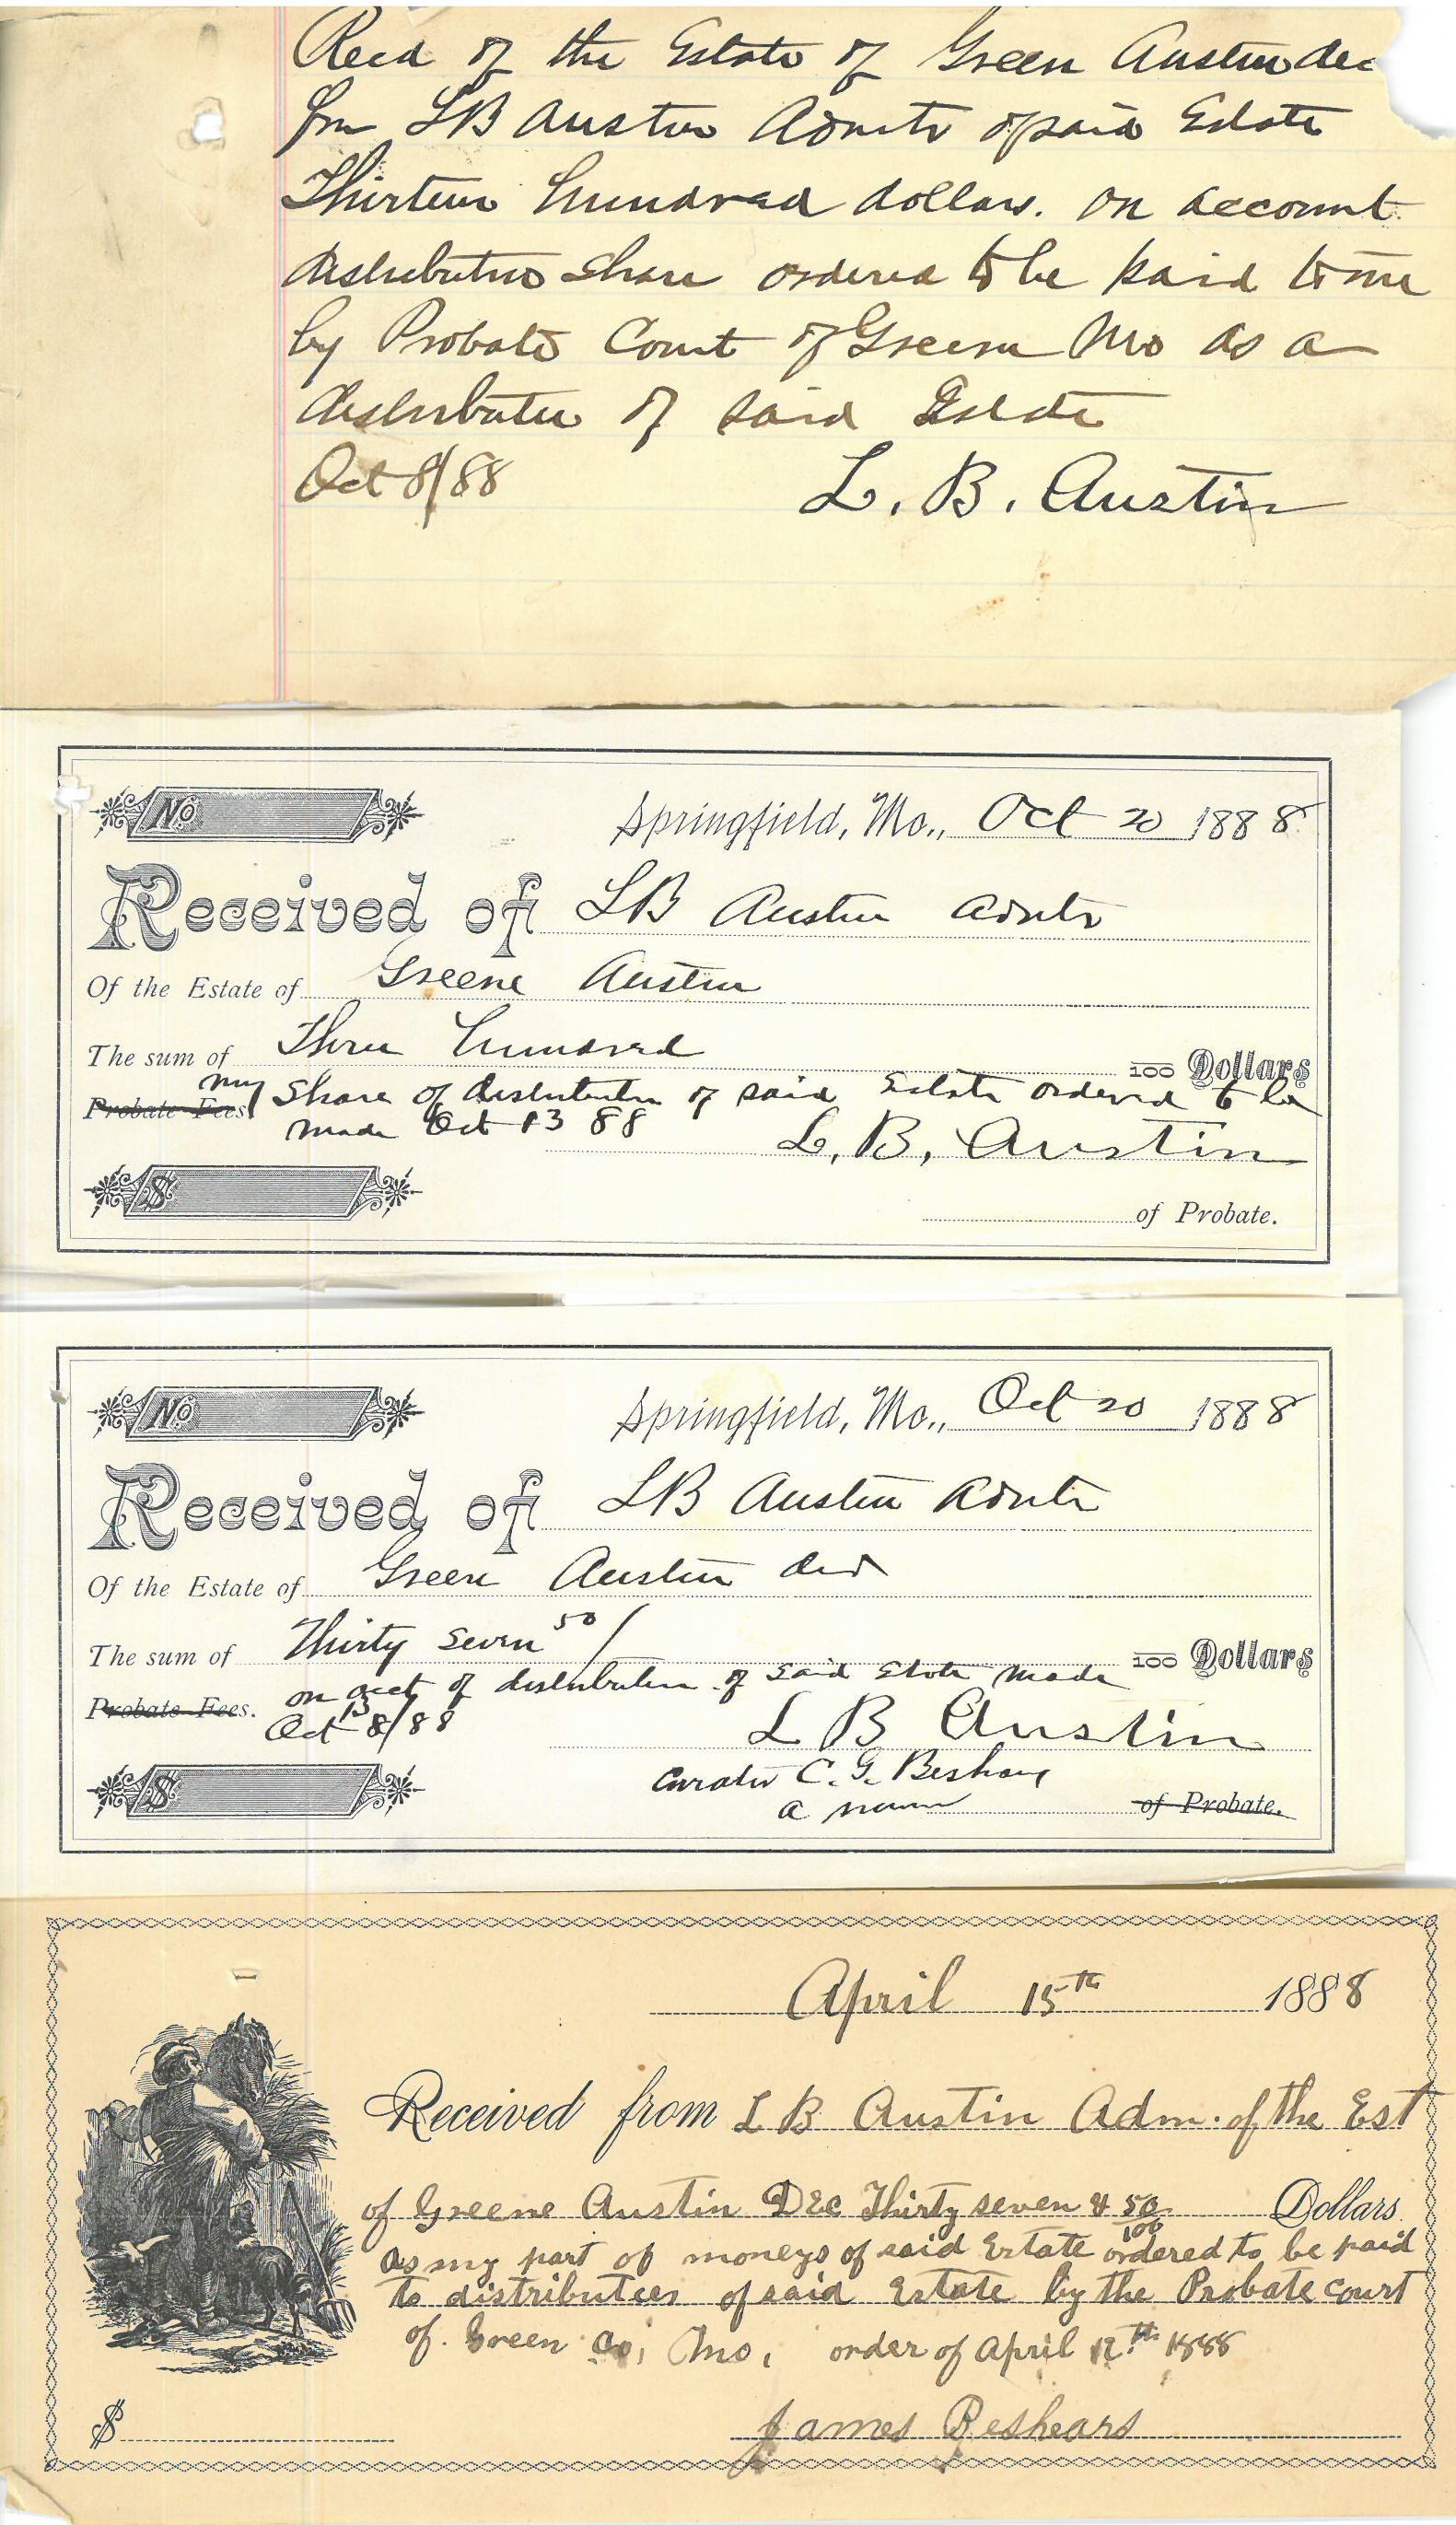 Recd of the Estate of Green Austin dec
from LB Austin Admtr of said Estate
Thirteen hundred dollars. on account
distributive share ordered to be paid to me
by Probate Court of Greene Mo as a
distributee of said Estate
Oct 8/88 L. B. Austin
No
Springfield, Mo., Oct 20 1888
Received of LB Austin admtr
Of the Estate of Greene Austin
The sum of Three hundred 100 Dollars
Probate Fees my share of distribution of said Estate ordered to be
made Oct 13 88
L. B. Austin
$
of Probate.
No
Springfield, Mo., Oct 20 1888
Received of LB Austin Admtr
Of the Estate of Green Austin decd
The sum of Thirty seven 50/ 100 Dollars
Probate Fees. on acct of distribution of said Estate made
Oct 13 8/88
L B Austin
$
curator C. G. Beshears
a minor of Probate.
April 15th 1888
Received from L B Austin Adm. of the Est
of Greene Austin DEC Thirty seven & 50/100 Dollars
as my part of moneys of said Estate ordered to be paid
to distributees of said Estate by the Probate court
of Green Co, Mo, order of April 12th 1888
$ James Beshears